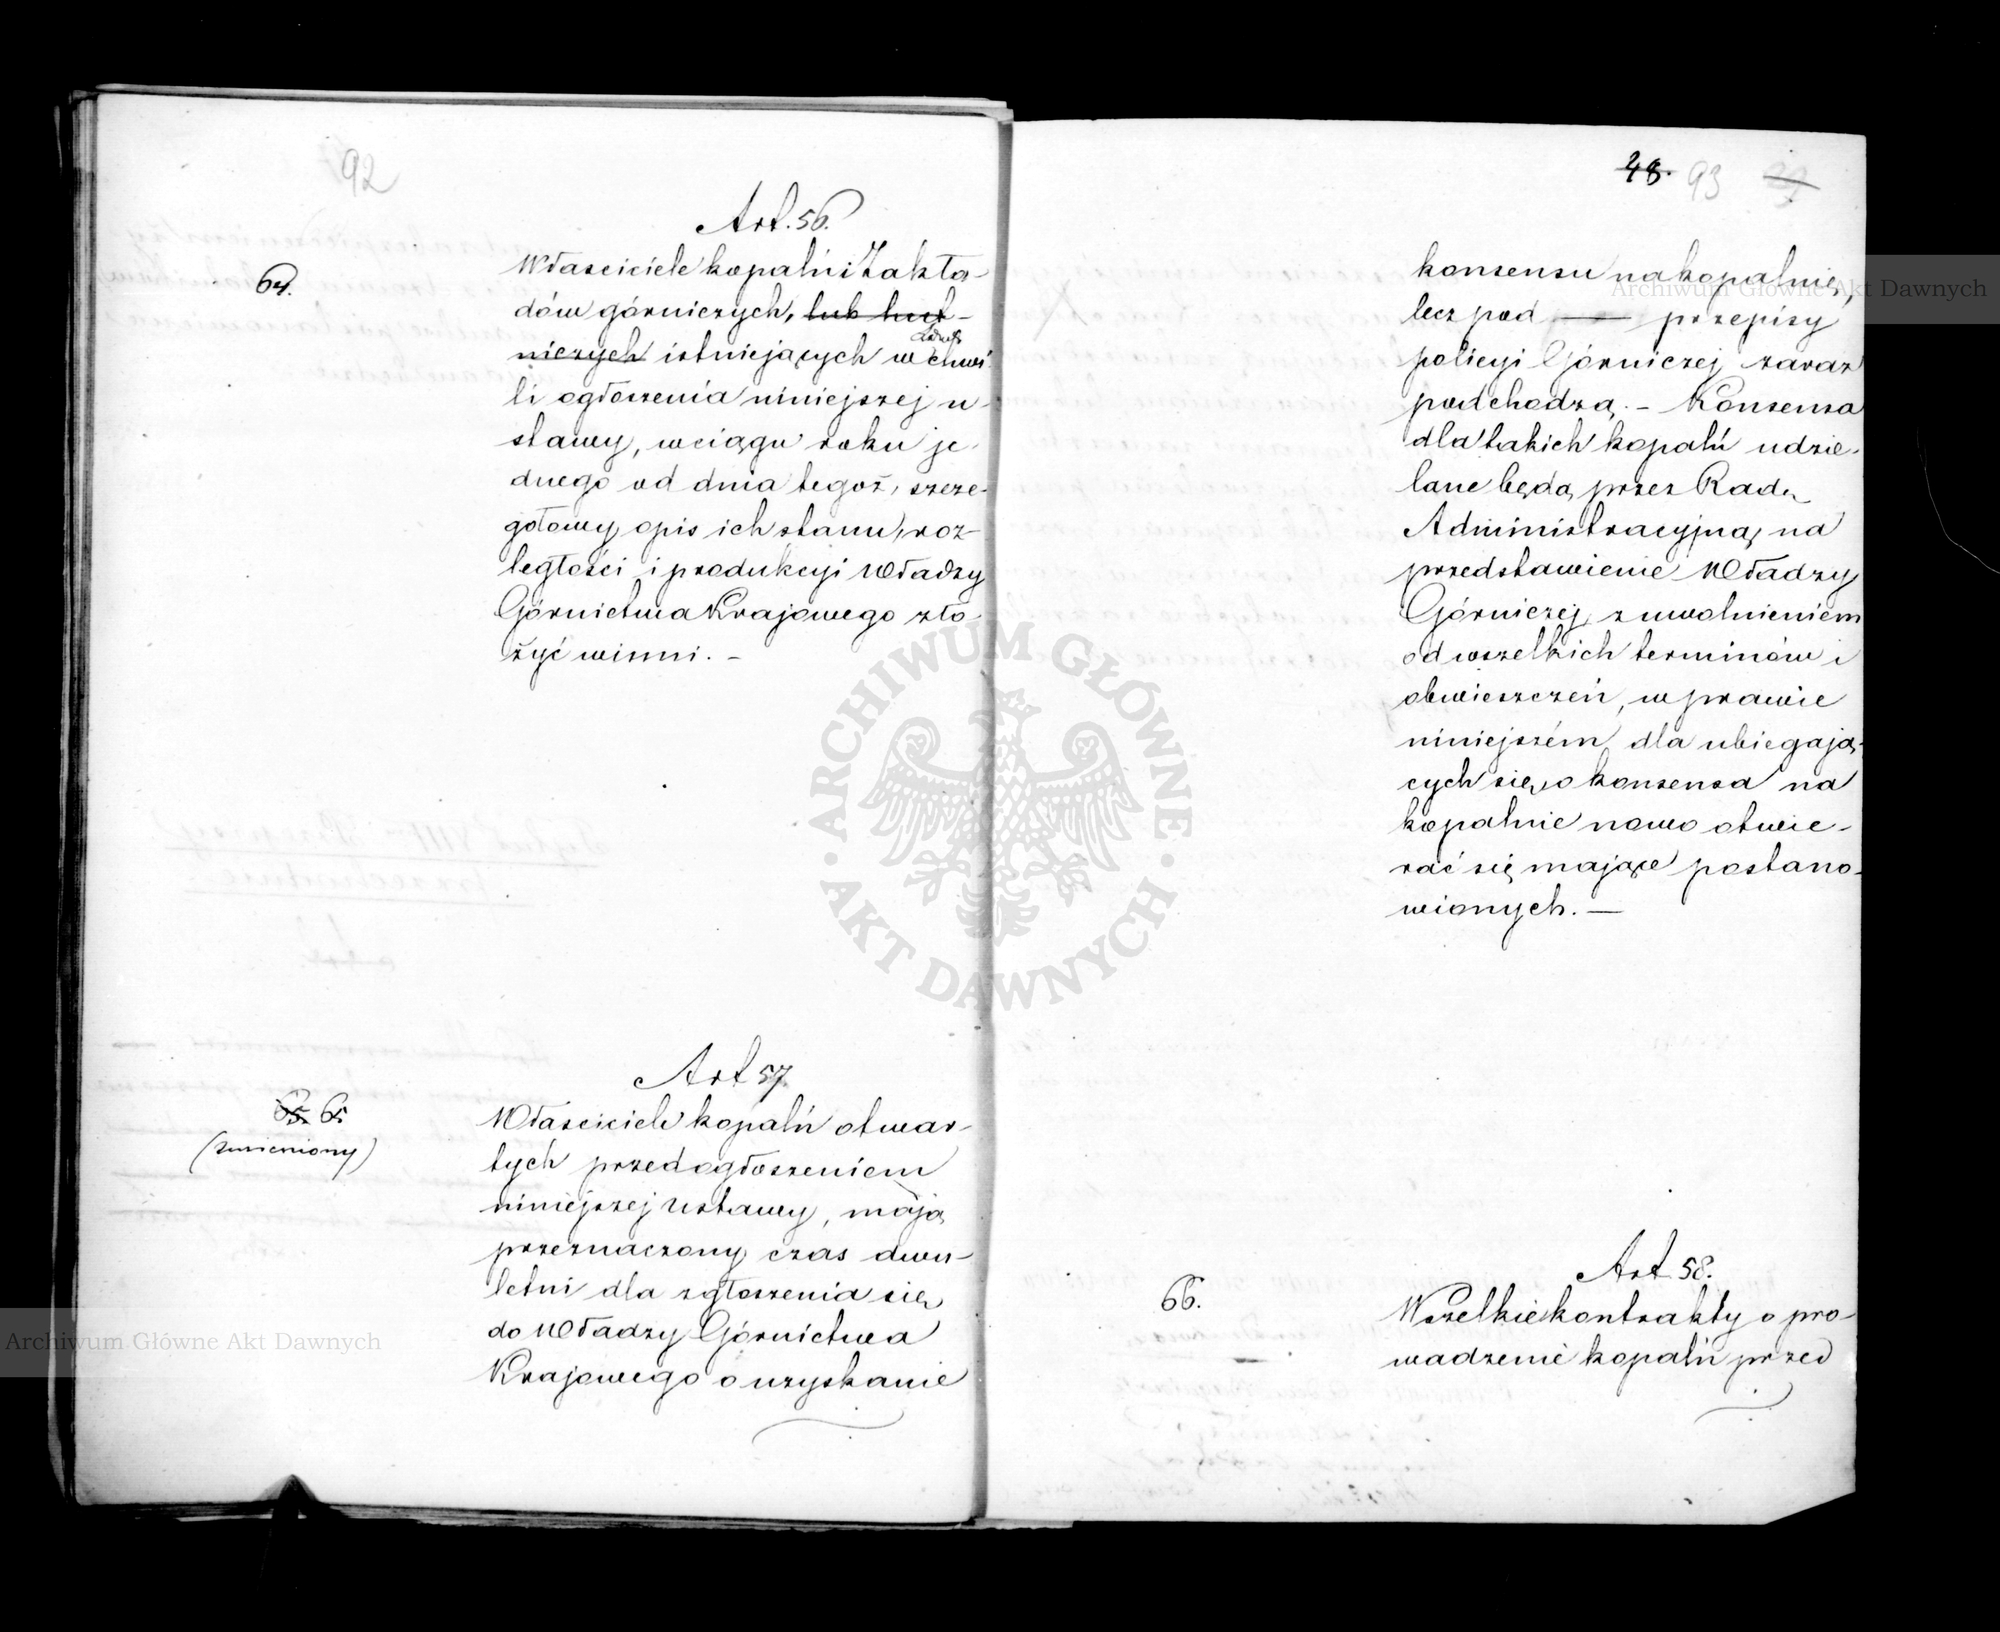 92
Art. 56.
64.
Właściciele kopalń i Zakła-
dów górniczych, lub hut-
niczych istniejących w chwi-
li ogłoszenia niniejszej u-
stawy, w ciągu roku je-
dnego od dnia tegoż, szcze-
gółowy opis ich stanu, roz-
ległości i produkcyi Władzy
Górnictwa Krajowego zło-
żyć winni. –
Art 57
65 65
(zmieniony)
Właściciele kopalń otwar-
tych przed ogłoszeniem
niniejszej ustawy, mają
przeznaczony czas dwu-
letni dla zgłoszenia się
do Władzy Górnictwa
Krajowego o uzyskanie
48. 93
konsensu na kopalnię,
lecz pod — przepisy
policyi Górniczej zaraz
podchodzą. – Konsensa
dla takich kopalń udzie-
lane będą przez Radę
Administracyjną, na
przedstawienie Władzy
Górniczej, z uwolnieniem
od wszelkich terminów i
obwieszczeń, w prawie
niniejszém dla ubiegają-
cych się o konsensa na
kopalnie nowo otwie-
rać się mające postano-
wionych. —
Art 58.
66.
Wszelkie kontrakty o pro-
wadzenie kopalń przed
ARCHIWUM GŁÓWNE
AKT DAWNYCH
Archiwum Główne Akt Dawnych
Archiwum Główne Akt Dawnych